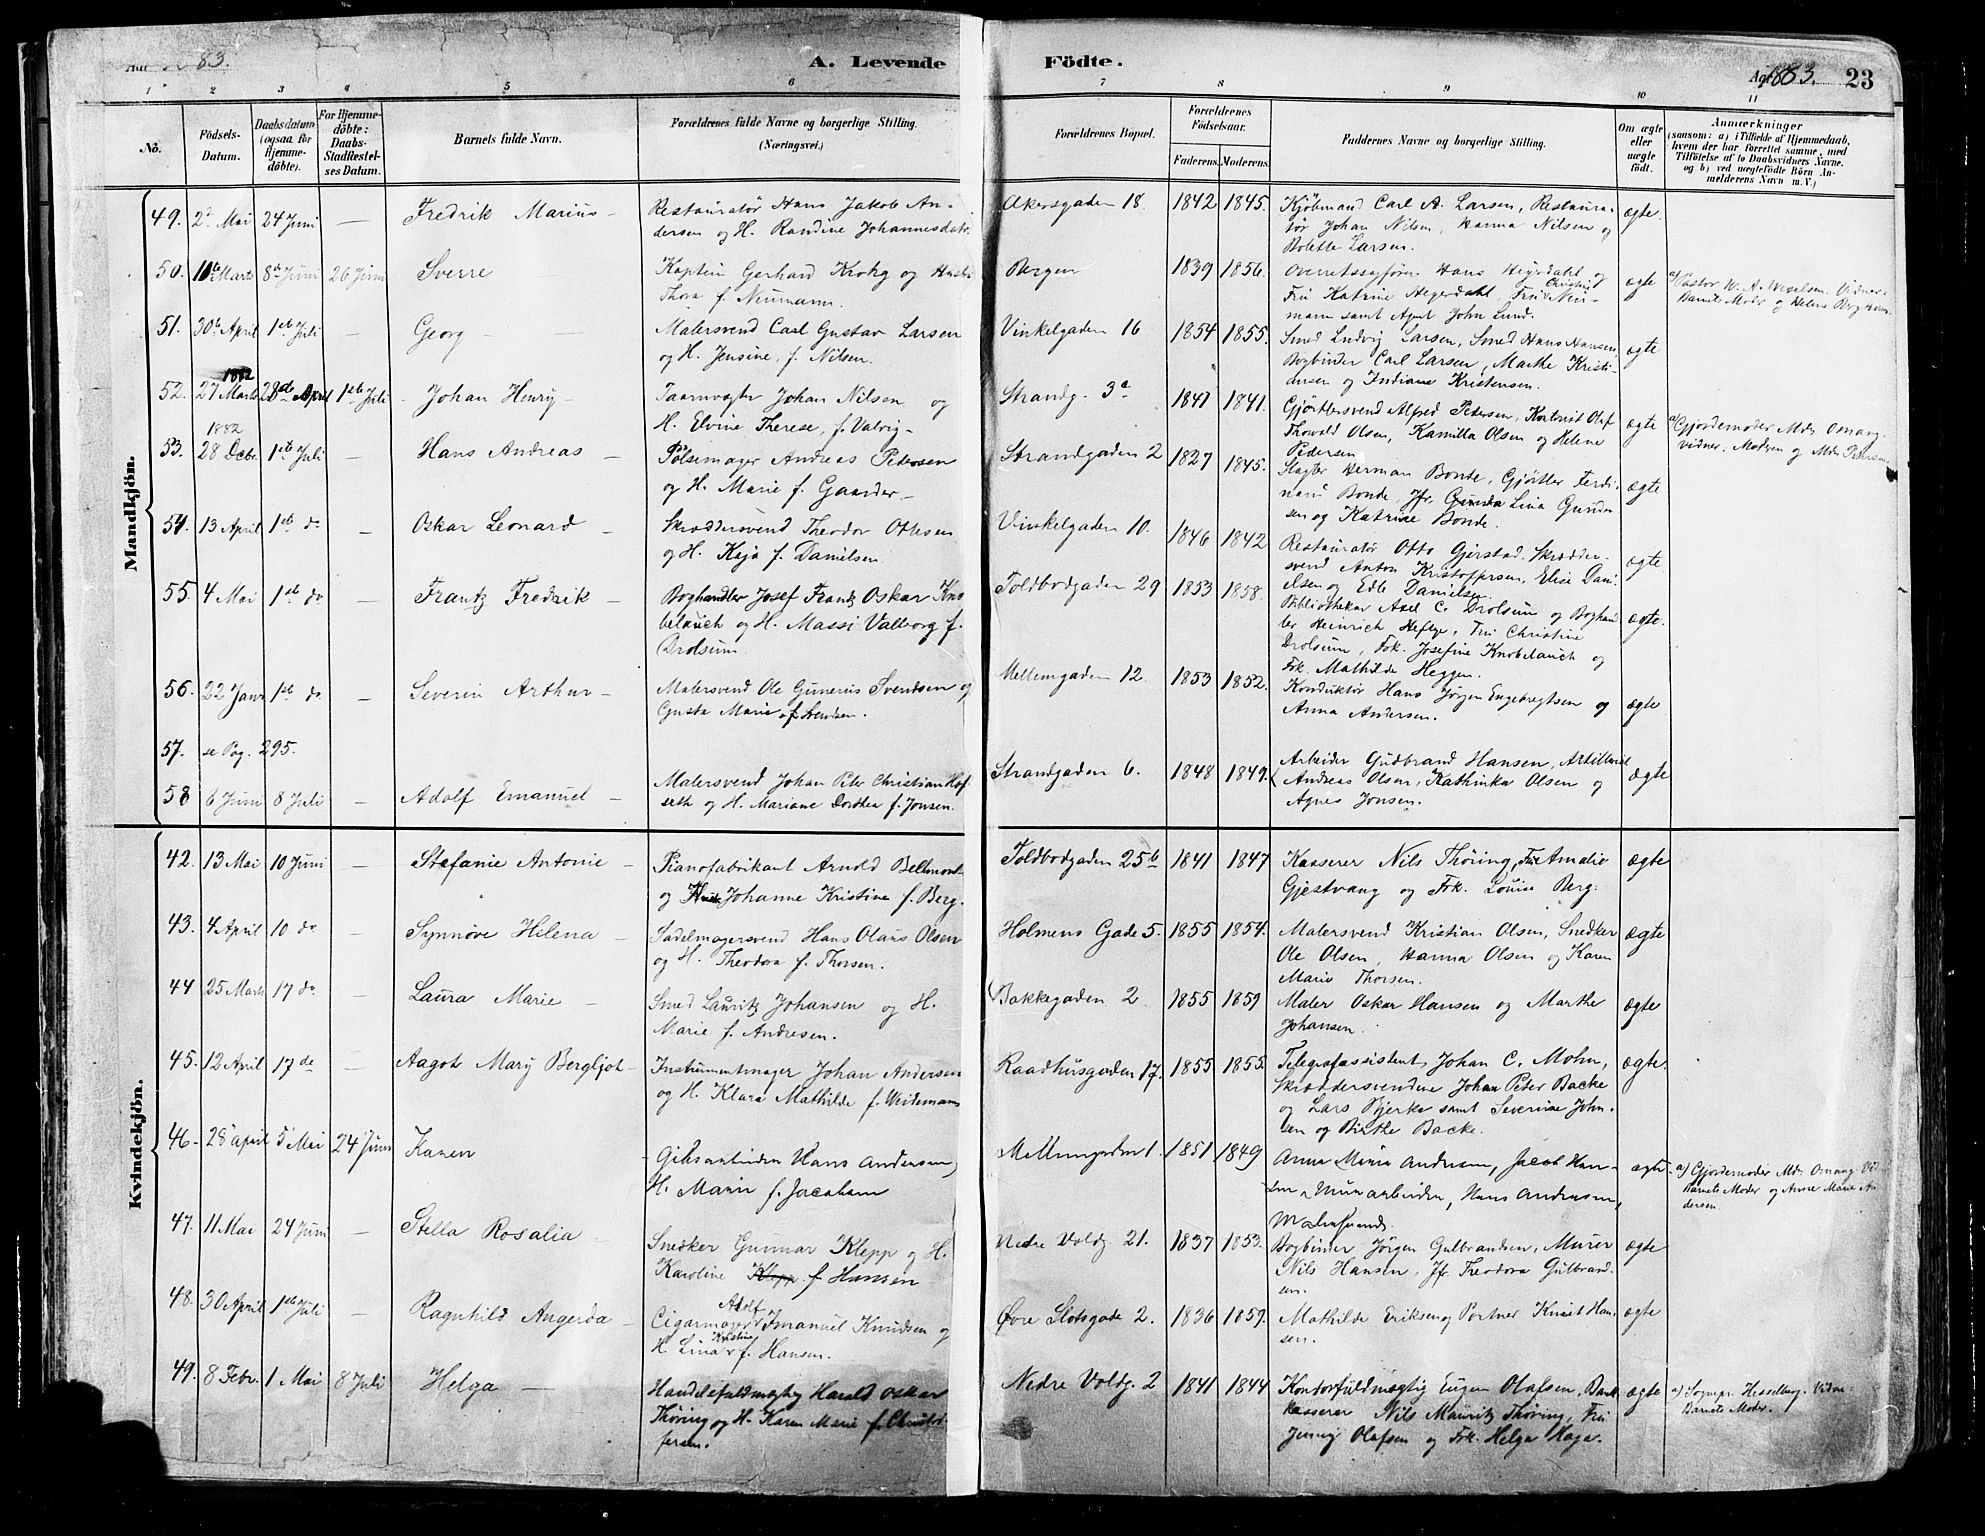 Aar 1883.
A. Levende
Födte.
Aar 1883. 23
1 2 3 4 5 6 7 8 9 10 11
No.
Födsels-
Datum.
Daabsdatum
(ogsaa for
Hjemme-
döbte).
For Hjemme-
döbte:
Daabs-
Stadfæstel-
ses Datum.
Barnets fulde Navn.
Forældrenes fulde Navne og borgerlige Stilling.
(Næringsvei.)
Forældrenes Bopæl.
Forældrenes
Födselsaar.
Faderens. Moderens.
Faddernes Navne og borgerlige Stilling.
Om ægte
eller
uægte
födt.
Anmærkninger
(saasom: a) i Tilfælde af Hjemmedaab,
hvem der har forrettet samme, med
Tilföielse af to Daabsvidners Navne.
og b) ved uægtefödte Börn An-
melderens Navn m. V.)
Mandkjön.
49. 2 Mai 24 Juni — Fredrik Marius - Restauratør Hans Jakob An-
dersen og H. Randine Johannesdatr.
Akersgaden 18. 1842 1845. Kjöbmand Carl A. Larsen, Restaura-
tør Johan Nilsen, Hanna Nilsen og
Bolette Larsen. ægte.
50. Marts 8de Juni 26 Juni Sverre — Kaptein Gerhard Krohg og Hustru
Thora f. Neumann.
Bergen 1839 1856. Overretssagfører Hans Heyerdahl og
Fru Katrine Heyerdahl Fru Christine Neu-
mann samt Agent John Lund. ægte a) Pastor W. A. Wexelsen. Vidner:
Barnets Moder og Helene Berg
51. 30te April 1ste Juli — Georg — Malersvend Carl Gustav Larsen
og H. Jensine, f. Nilsen.
Vinkelgaden 16 1854 1855. Smed Ludvig Larsen, Smed Hans Hansen,
Bogbinder Carl Larsen, Marthe Kristi-
ansen og Indiane Kristensen. ægte
52. 1882 27 Marts 28de April 1ste Juli - Johan Henry — Taarnvogter Johan Nilsen og
H. Elvine Therese, f. Valvig —
Strandg. 3a 1841 1841. Gjørtlersvend Alfred Petersen, Kontorist Olaf
Thorvald Olsen, Kamilla Olsen og Helene
Pedersen ægte a) Gjordemoder Md. Omang.
vidner: Moderen og Md. Petersen
53. 1882 28 Decbr. 1ste Juli — Hans Andreas — Pölsemager Andreas Petersen
og H. Marie f. Gaarder —
Strandgaden 2 1827 1845. Slagter Herman Bonde, Gjørtler Ferdi-
nand Bonde, Jfr. Gunda Lina Gunder-
sen og Katrine Bonde. ægte
54. 13 April 1ste do — Oskar Leonard — Skræddersvend Theodor Ottesen
og H. Kaja f. Danielsen.
Vinkelgaden 10. 1846 1842 Restauratør Otto Gjerstad. Skrædder-
svend Anton Kristoffersen, Elise Dani-
elsen og Edle Danielsen. ægte
55. 4 Mai 1ste do — Frantz Fredrik — Boghandler Josef Frantz Oskar Kno-
belauch og H. Massi Valborg f.
Drolsum.
Toldbodgaden 29 1853 1858. Bibliothekar Axel C. Drolsum og Boghand-
ler Heinrich Heftye, Fru Christine
Drolsum, Frk. Josefine Knobelauch og
Frk. Mathilde Heggen. ægte.
56. 22 Janr 1ste do — Severin Arthur — Malersvend Ole Gunerius Svendsen og
Gusta Marie f. Svendsen.
Mellemgaden 12. 1853 1852. Konduktör Hans Jørgen Engebregtsen og
Anna Andersen. ægte
57. se Pag. 295.
58 6 Juni 8 Juli — Adolf Emanuel — Malersvend Johan Peter Christian Hof-
seth og H. Mariane Dorthea f. Jonsen.
Strandgaden 6. 1848 1849. Arbeider Gudbrand Hansen, Artillerist
Andreas Olsen, Kathinka Olsen og
Agnes Jonsen. ægte
Kvindekjön.
42. 13 Mai 10 Juni — Stefanie Antonie — Pianofabrikant Arnold Bellmont
og Johanne Kristine f. Berg.
Toldbodgaden 25b 1841 1847 Kasserer Nils Thøring, Fru Amalie
Gjestvang og Frk. Louise Berg. ægte
43. 4 April 10 do — Synnøve Helena — Sadelmagersvend Hans Olaus Olsen
og H. Theodora f. Thorsen.
Holmens Gade 5. 1855 1854. Malersvend Kristian Olsen, Snedker
Ole Olsen, Hanna Olsen og Karen
Marie Thorsen. ægte
44 25 Marts 17 do — Laura Marie — Smed Lauritz Johansen og H.
Marie f. Andresen.
Bakkegaden 2. 1855 1859 Maler Oskar Hansen og Marthe
Johansen. ægte
45. 12 April 17 de — Aagot Mary Bergljot - Instrumentmager Johan Andersen
og H. Klara Mathilde f. Weidemann
Raadhusgaden 17. 1855 1855. Telegrafassistent Johan C. Mohn,
Skræddersvendene Johan Peter Backe
og Lars Bjerke samt Severine John-
sen og Birthe Backe. ægte.
46. 28 April 5 Mai 24 Juni Karen - Gibsarbeider Hans Andersen,
H. Marie f. Jacobsen
Mellemgaden 1. 1851 1849 Anna Maria Andersen, Jacob Han-
sen, Murarbeider, Hans Andersen,
Malersvend. ægte. a) Gjordemoder Md. Omang. Vid.
Barnets Moder og Anne Marie An-
dersen.
47. 11 Mai 24 Juni — Stella Rosalia — Snedker Gunnar Klepp og H.
Karoline Klepp f. Hansen
Nedre Voldg. 21. 1837 1853. Bogbinder Jörgen Gulbrandsen, Murer
Nils Hansen, Jfr. Theodora Gulbrand-
sen. ægte
48. 30 April 1ste Juli — Ragnhild Angerda — Cigarmager Adolf Imanuel Knudsen og
H. Lina Kristine f. Hansen.
Øvre Slotsgade 2. 1836 1859. Mathilde Eriksen og Portner Knut Han-
sen. ægte
49. 8 Febr. 1 Mai 8 Juli Helga — Handelsfuldmægtig Harald Oskar
Thøring og H. Karen Marie f. Christof-
fersen.
Nedre Voldg. 2 1841 1844 Kontorfuldmægtig Eugen Olafsen, Bank-
kasserer Nils Mauritz Thøring, Fru
Jenny Olafsen og Frk. Helga Haga. ægte a) Sognepr. Hesselberg. Vidne
Barnets Moder.